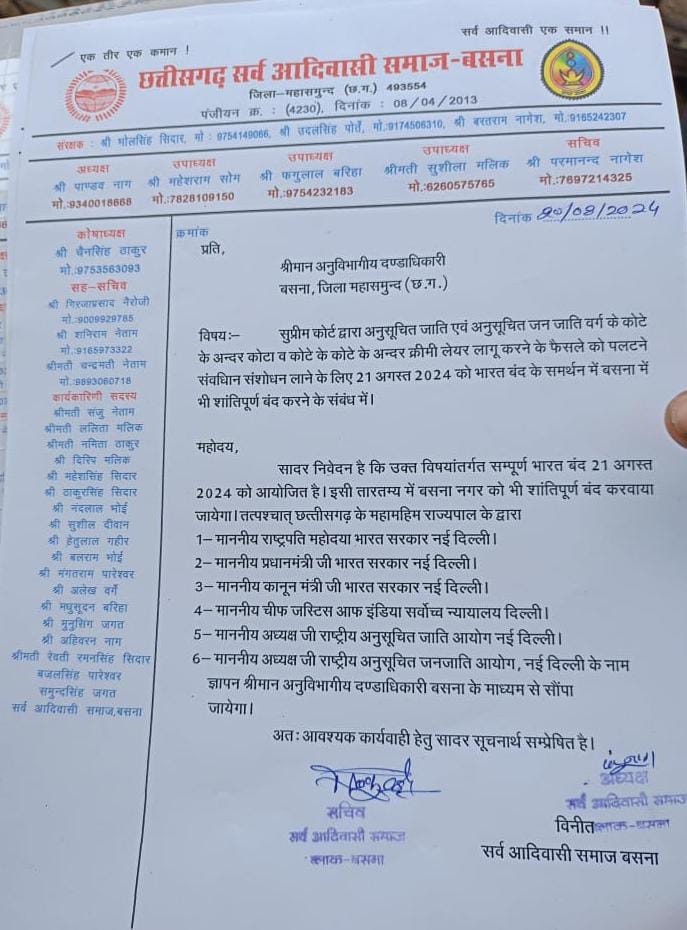 एक तीर एक कमान !
सर्व आदिवासी एक समान !!
छत्तीसगढ़ सर्व आदिवासी समाज-बसना
जिला-महासमुन्द (छ.ग.) 493554
पंजीयन क्र. : (4230), दिनांक : 08/04/2013
संरक्षक : श्री भोलसिंह सिदार, मो : 9754149066, श्री उदलसिंह पोर्ते, मो.:9174506310, श्री बरतराम नागेश, मो.:9165242307
अध्यक्ष
श्री पाण्डव नाग
मो.:9340018668
उपाध्यक्ष
श्री महेशराम सोम
मो.:7828109150
उपाध्यक्ष
श्री फगुलाल बरिहा
मो.:9754232183
उपाध्यक्ष
श्रीमती सुशीला मलिक
मो.:6260575765
सचिव
श्री परमानन्द नागेश
मो.:7697214325
कोषाध्यक्ष
श्री चैनसिंह ठाकुर
मो.:9753563093
सह-सचिव
श्री गिरजाप्रसाद नैरोजी
मो.:9009929785
श्री शनिराम नेताम
मो.:9165973322
श्रीमती चन्द्रमती नेताम
मो.:9893060718
कार्यकारिणी सदस्य
श्रीमती संजु नेताम
श्रीमती ललिता मलिक
श्रीमती नमिता ठाकुर
श्री दिरिप मलिक
श्री महेशसिंह सिदार
श्री ठाकुरसिंह सिदार
श्री नंदलाल भोई
श्री सुशील दीवान
श्री हेतुलाल गहीर
श्री बलराम भोई
श्री मंगतराम पारेश्वर
श्री अलेख वर्गे
श्री मधुसूदन बरिहा
श्री मुनुसिंग जगत
श्री अहिवरन नाग
श्रीमती रेवती रमनसिंह सिदार
बजलसिंह पारेश्वर
समुन्दसिंह जगत
सर्व आदिवासी समाज,बसना
क्रमांक
दिनांक 20/08/2024
प्रति,
श्रीमान अनुविभागीय दण्डाधिकारी
बसना, जिला महासमुन्द (छ.ग.)
विषय:– सुप्रीम कोर्ट द्वारा अनुसूचित जाति एवं अनुसूचित जन जाति वर्ग के कोटे
के अन्दर कोटा व कोटे के कोटे के अन्दर क्रीमी लेयर लागू करने के फैसले को पलटने
संवधिान संशोधन लाने के लिए 21 अगस्त 2024 को भारत बंद के समर्थन में बसना में
भी शांतिपूर्ण बंद करने के संबंध में।
महोदय,
सादर निवेदन है कि उक्त विषयांतर्गत सम्पूर्ण भारत बंद 21 अगस्त
2024 को आयोजित है। इसी तारतम्य में बसना नगर को भी शांतिपूर्ण बंद करवाया
जायेगा। तत्पश्चात् छत्तीसगढ़ के महामहिम राज्यपाल के द्वारा
1– माननीय राष्ट्रपति महोदया भारत सरकार नई दिल्ली।
2– माननीय प्रधानमंत्री जी भारत सरकार नई दिल्ली।
3– माननीय कानून मंत्री जी भारत सरकार नई दिल्ली।
4– माननीय चीफ जस्टिस आफ इंडिया सर्वोच्च न्यायालय दिल्ली।
5– माननीय अध्यक्ष जी राष्ट्रीय अनुसूचित जाति आयोग नई दिल्ली।
6– माननीय अध्यक्ष जी राष्ट्रीय अनुसूचित जनजाति आयोग, नई दिल्ली के नाम
ज्ञापन श्रीमान अनुविभागीय दण्डाधिकारी बसना के माध्यम से सौंपा
जायेगा।
अतः आवश्यक कार्यवाही हेतु सादर सूचनार्थ सम्प्रेषित है।
सचिव
सर्व आदिवासी समाज
ब्लाक-बसना
अध्यक्ष
सर्व आदिवासी समाज
विनीत ब्लाक-बसना
सर्व आदिवासी समाज बसना